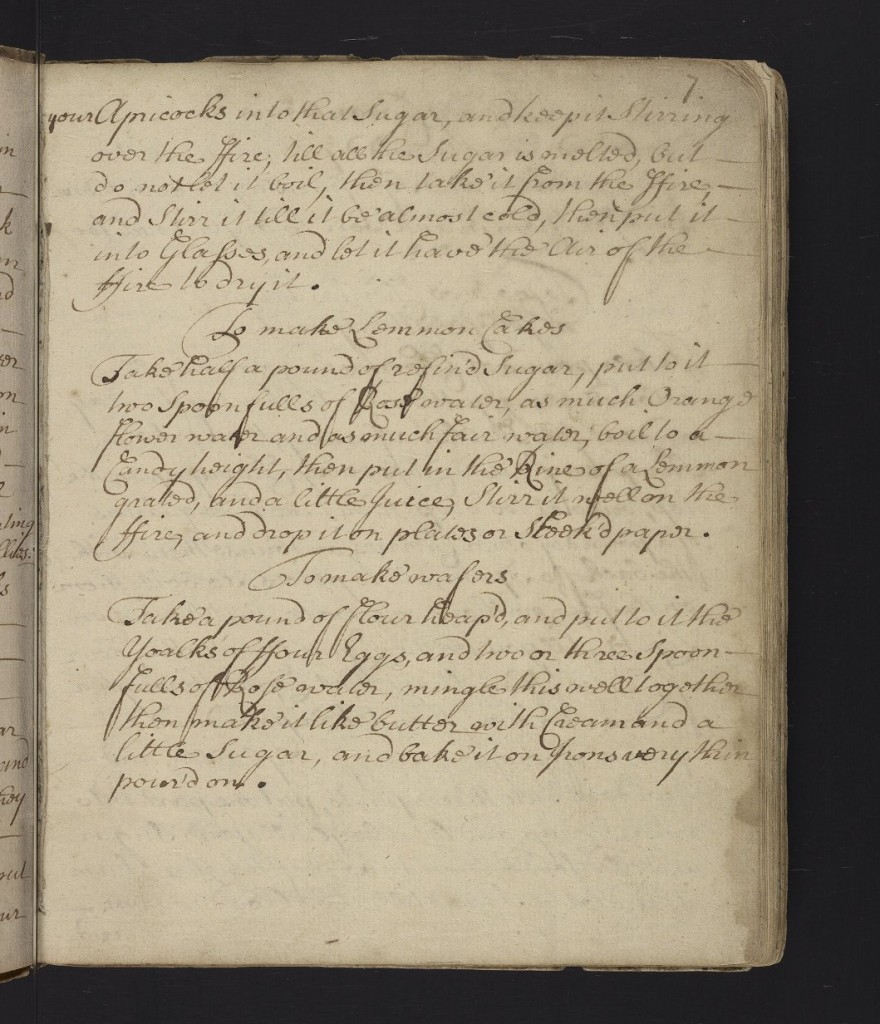 7
your Apricocks into that Sugar, and keep it Stirring
over the ffire, till all the Sugar is melted, but —
do not let it boil, then take it from the ffire —
and Stirr it till it be almost cold, then put it —
into Glasses, and let it have the Air of the —
ffire to dry it .
To make Lemmon Cakes
Take half a pound of refin'd Sugar, put to it —
two Spoonfulls of Rose water, as much Orange
flower water and as much fair water, boil to a —
Candy height, then put in the Rine of a Lemmon
grated, and a little Juice, Stirr it well on the
ffire, and drop it on plates or Sleek'd paper .
To make wafers
Take a pound of flour heap'd, and put to it the
Yoalks of ffour Eggs, and two or three Spoon —
fulls of Rose water, mingle this well together
then make it like butter with Cream and a
little Sugar, and bake it on Irons very thin
pour'd on .